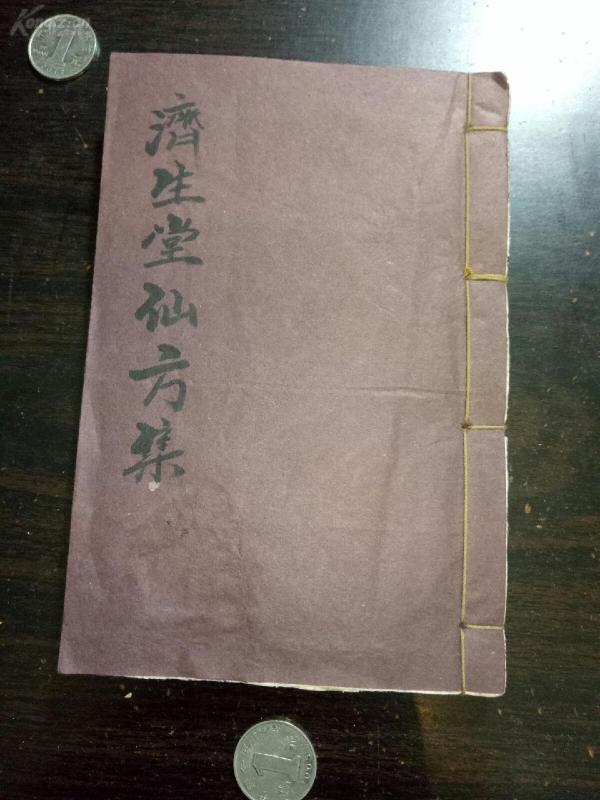 濟生堂仙方集
1
1